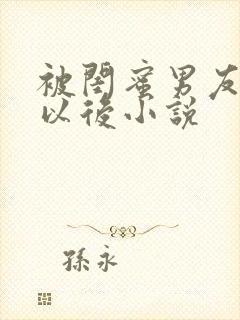 被閨蜜男友
以後小説
孫永